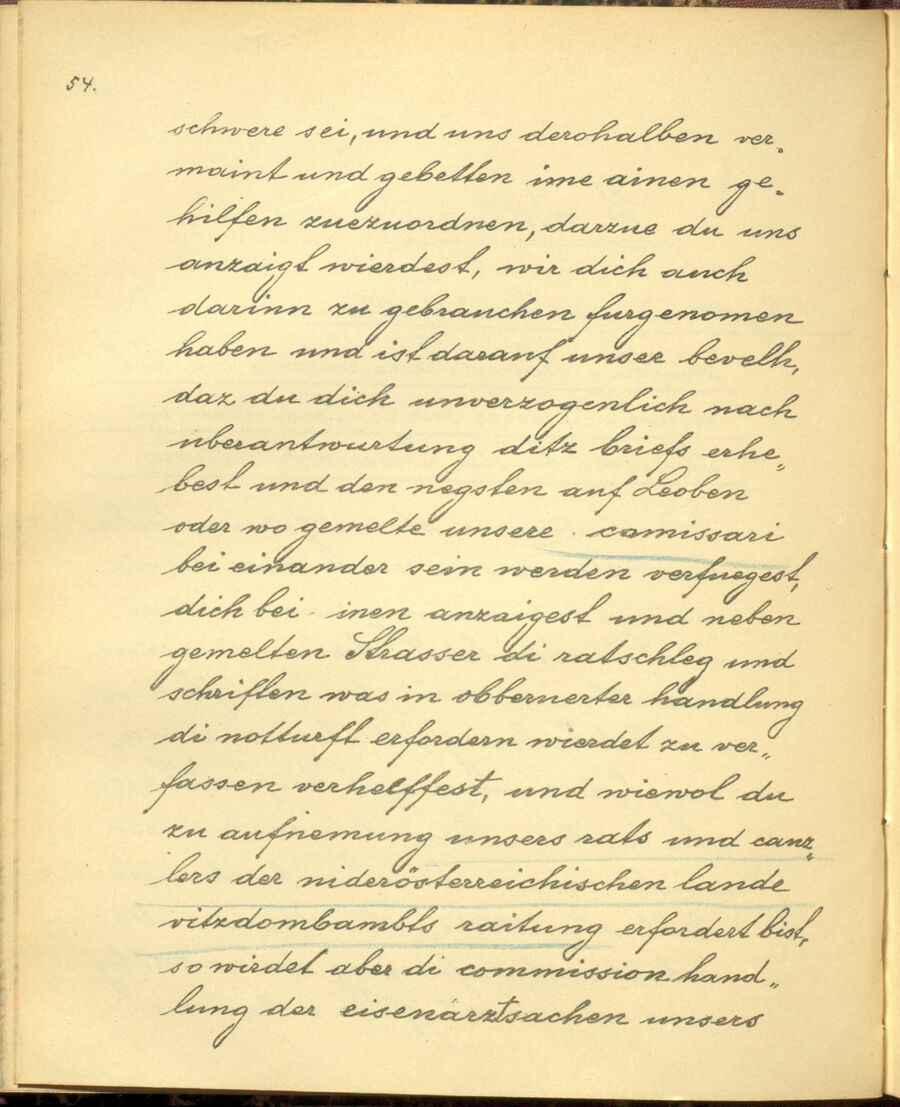 54.
schwere sei, und uns derohalben ver-
maint und gebetten ime ainen ge-
hilfen zuezuordnen, darzue du uns
anzaigt wierdest, wir dich auch
darinn zu gebrauchen furgenomen
haben und ist darauf unser bevelh,
daz du dich unverzogenlich nach
uberantwurtung ditz briefs erhe„
best und den negsten auf Leoben
oder wo gemelte unsere camissari
bei einander sein werden verfuegest,
dich bei inen anzaigest und neben
gemelten Strasser di ratschleg und
schriften was in obbernerter handlung
di notturft erfordern wierdet zu ver„
fassen verhelffest, und wiewol du
zu aufnemung unsers rats und canz„
lers der niderösterreichischen lande
vitzdombambts raitung erfordert bist,
so wirdet aber di commission hand„
lung der eisenärztsachen unsers